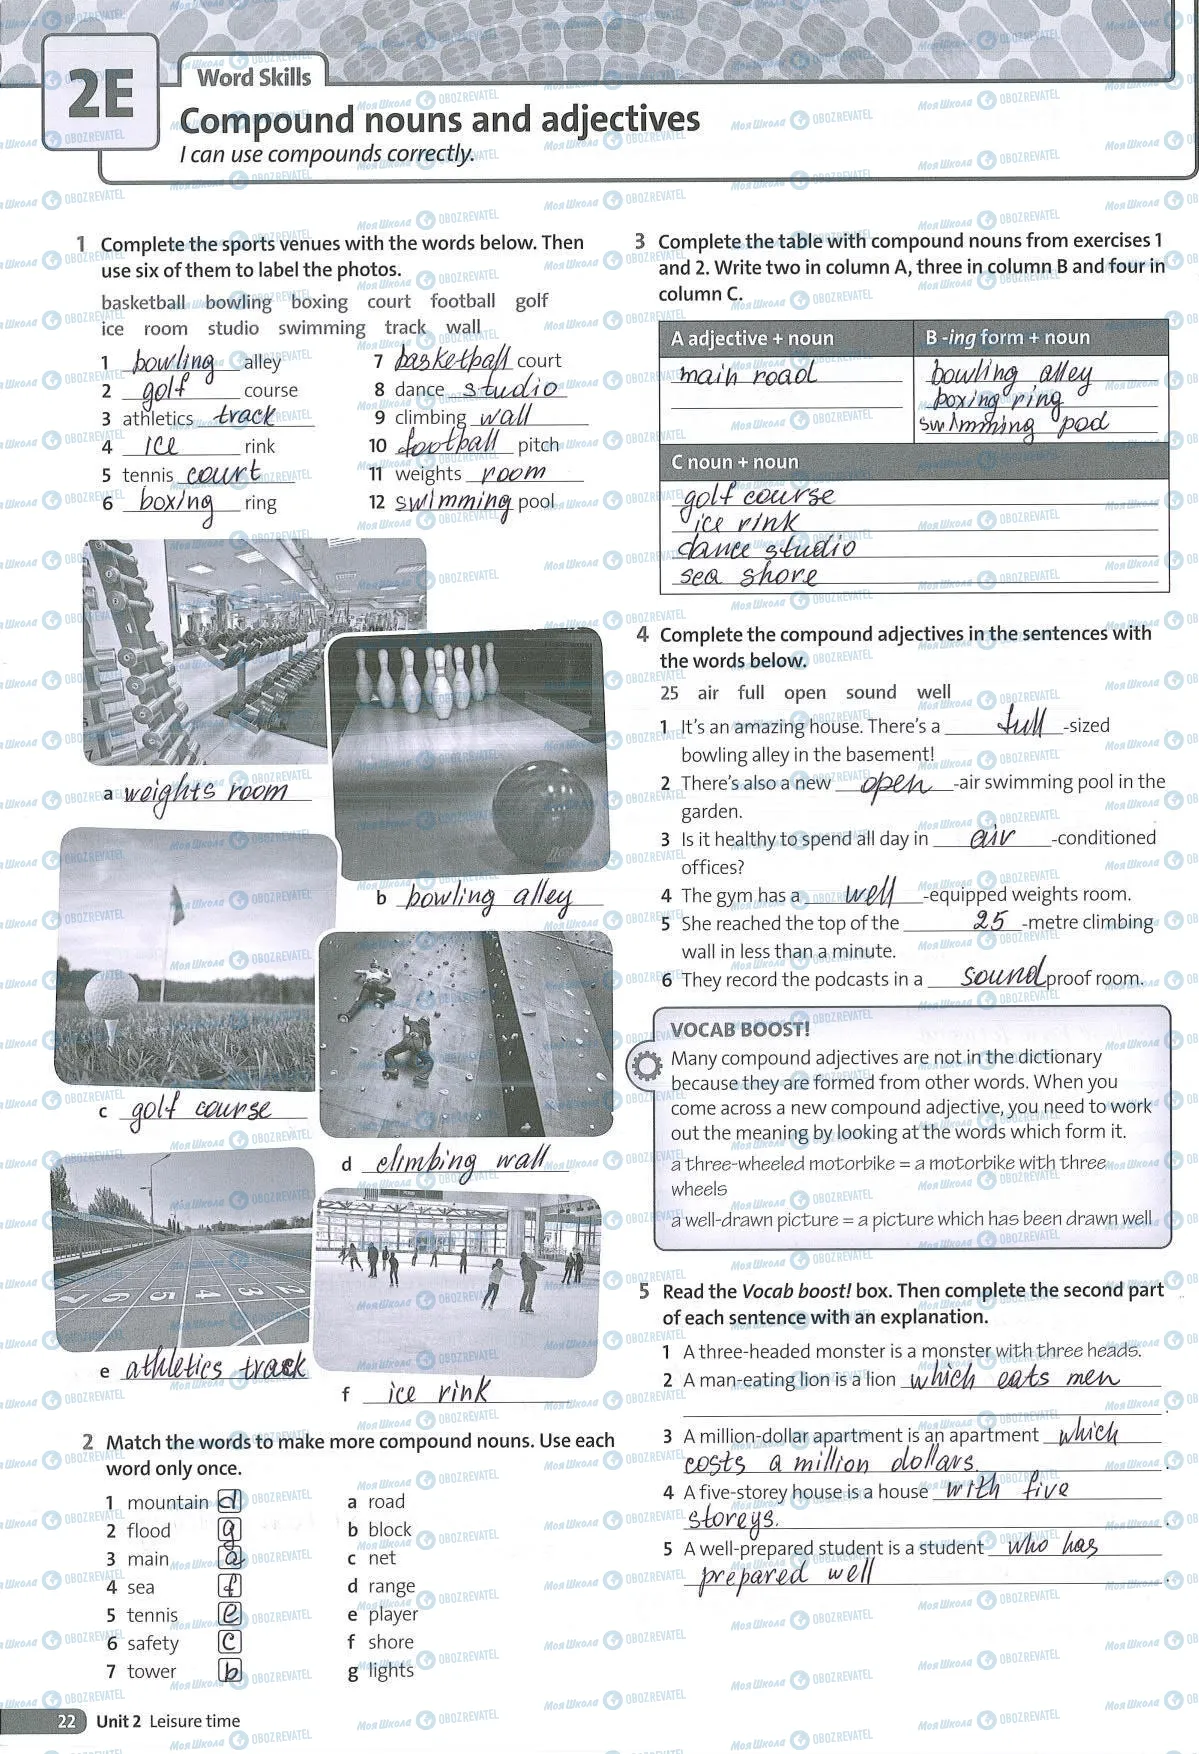 2E
Word Skills
Compound nouns and adjectives
I can use compounds correctly.
1 Complete the sports venues with the words below. Then
use six of them to label the photos.
basketball bowling boxing court football golf
ice room studio swimming track wall
1 bowling alley
2 golf course
3 athletics track
4 ice rink
5 tennis court
6 boxing ring
7 basketball court
8 dance studio
9 climbing wall
10 football pitch
11 weights room
12 swimming pool
a weights room
b bowling alley
c golf course
d climbing wall
e athletics track
f ice rink
2 Match the words to make more compound nouns. Use each
word only once.
1 mountain d
2 flood g
3 main a
4 sea f
5 tennis e
6 safety c
7 tower b
a road
b block
c net
d range
e player
f shore
g lights
3 Complete the table with compound nouns from exercises 1
and 2. Write two in column A, three in column B and four in
column C.
A adjective + noun
main road
B -ing form + noun
bowling alley
boxing ring
swimming pod
C noun + noun
golf course
ice rink
dance studio
sea shore
4 Complete the compound adjectives in the sentences with
the words below.
25 air full open sound well
1 It's an amazing house. There's a full -sized
bowling alley in the basement!
2 There's also a new open -air swimming pool in the
garden.
3 Is it healthy to spend all day in air -conditioned
offices?
4 The gym has a well -equipped weights room.
5 She reached the top of the 25 -metre climbing
wall in less than a minute.
6 They record the podcasts in a sound proof room.
VOCAB BOOST!
Many compound adjectives are not in the dictionary
because they are formed from other words. When you
come across a new compound adjective, you need to work
out the meaning by looking at the words which form it.
a three-wheeled motorbike = a motorbike with three
wheels
a well-drawn picture = a picture which has been drawn well
5 Read the Vocab boost! box. Then complete the second part
of each sentence with an explanation.
1 A three-headed monster is a monster with three heads.
2 A man-eating lion is a lion which eats men
.
3 A million-dollar apartment is an apartment which
costs a million dollars. .
4 A five-storey house is a house with five
storeys. .
5 A well-prepared student is a student who has
prepared well .
22 Unit 2 Leisure time
Моя Школа OBOZREVATEL